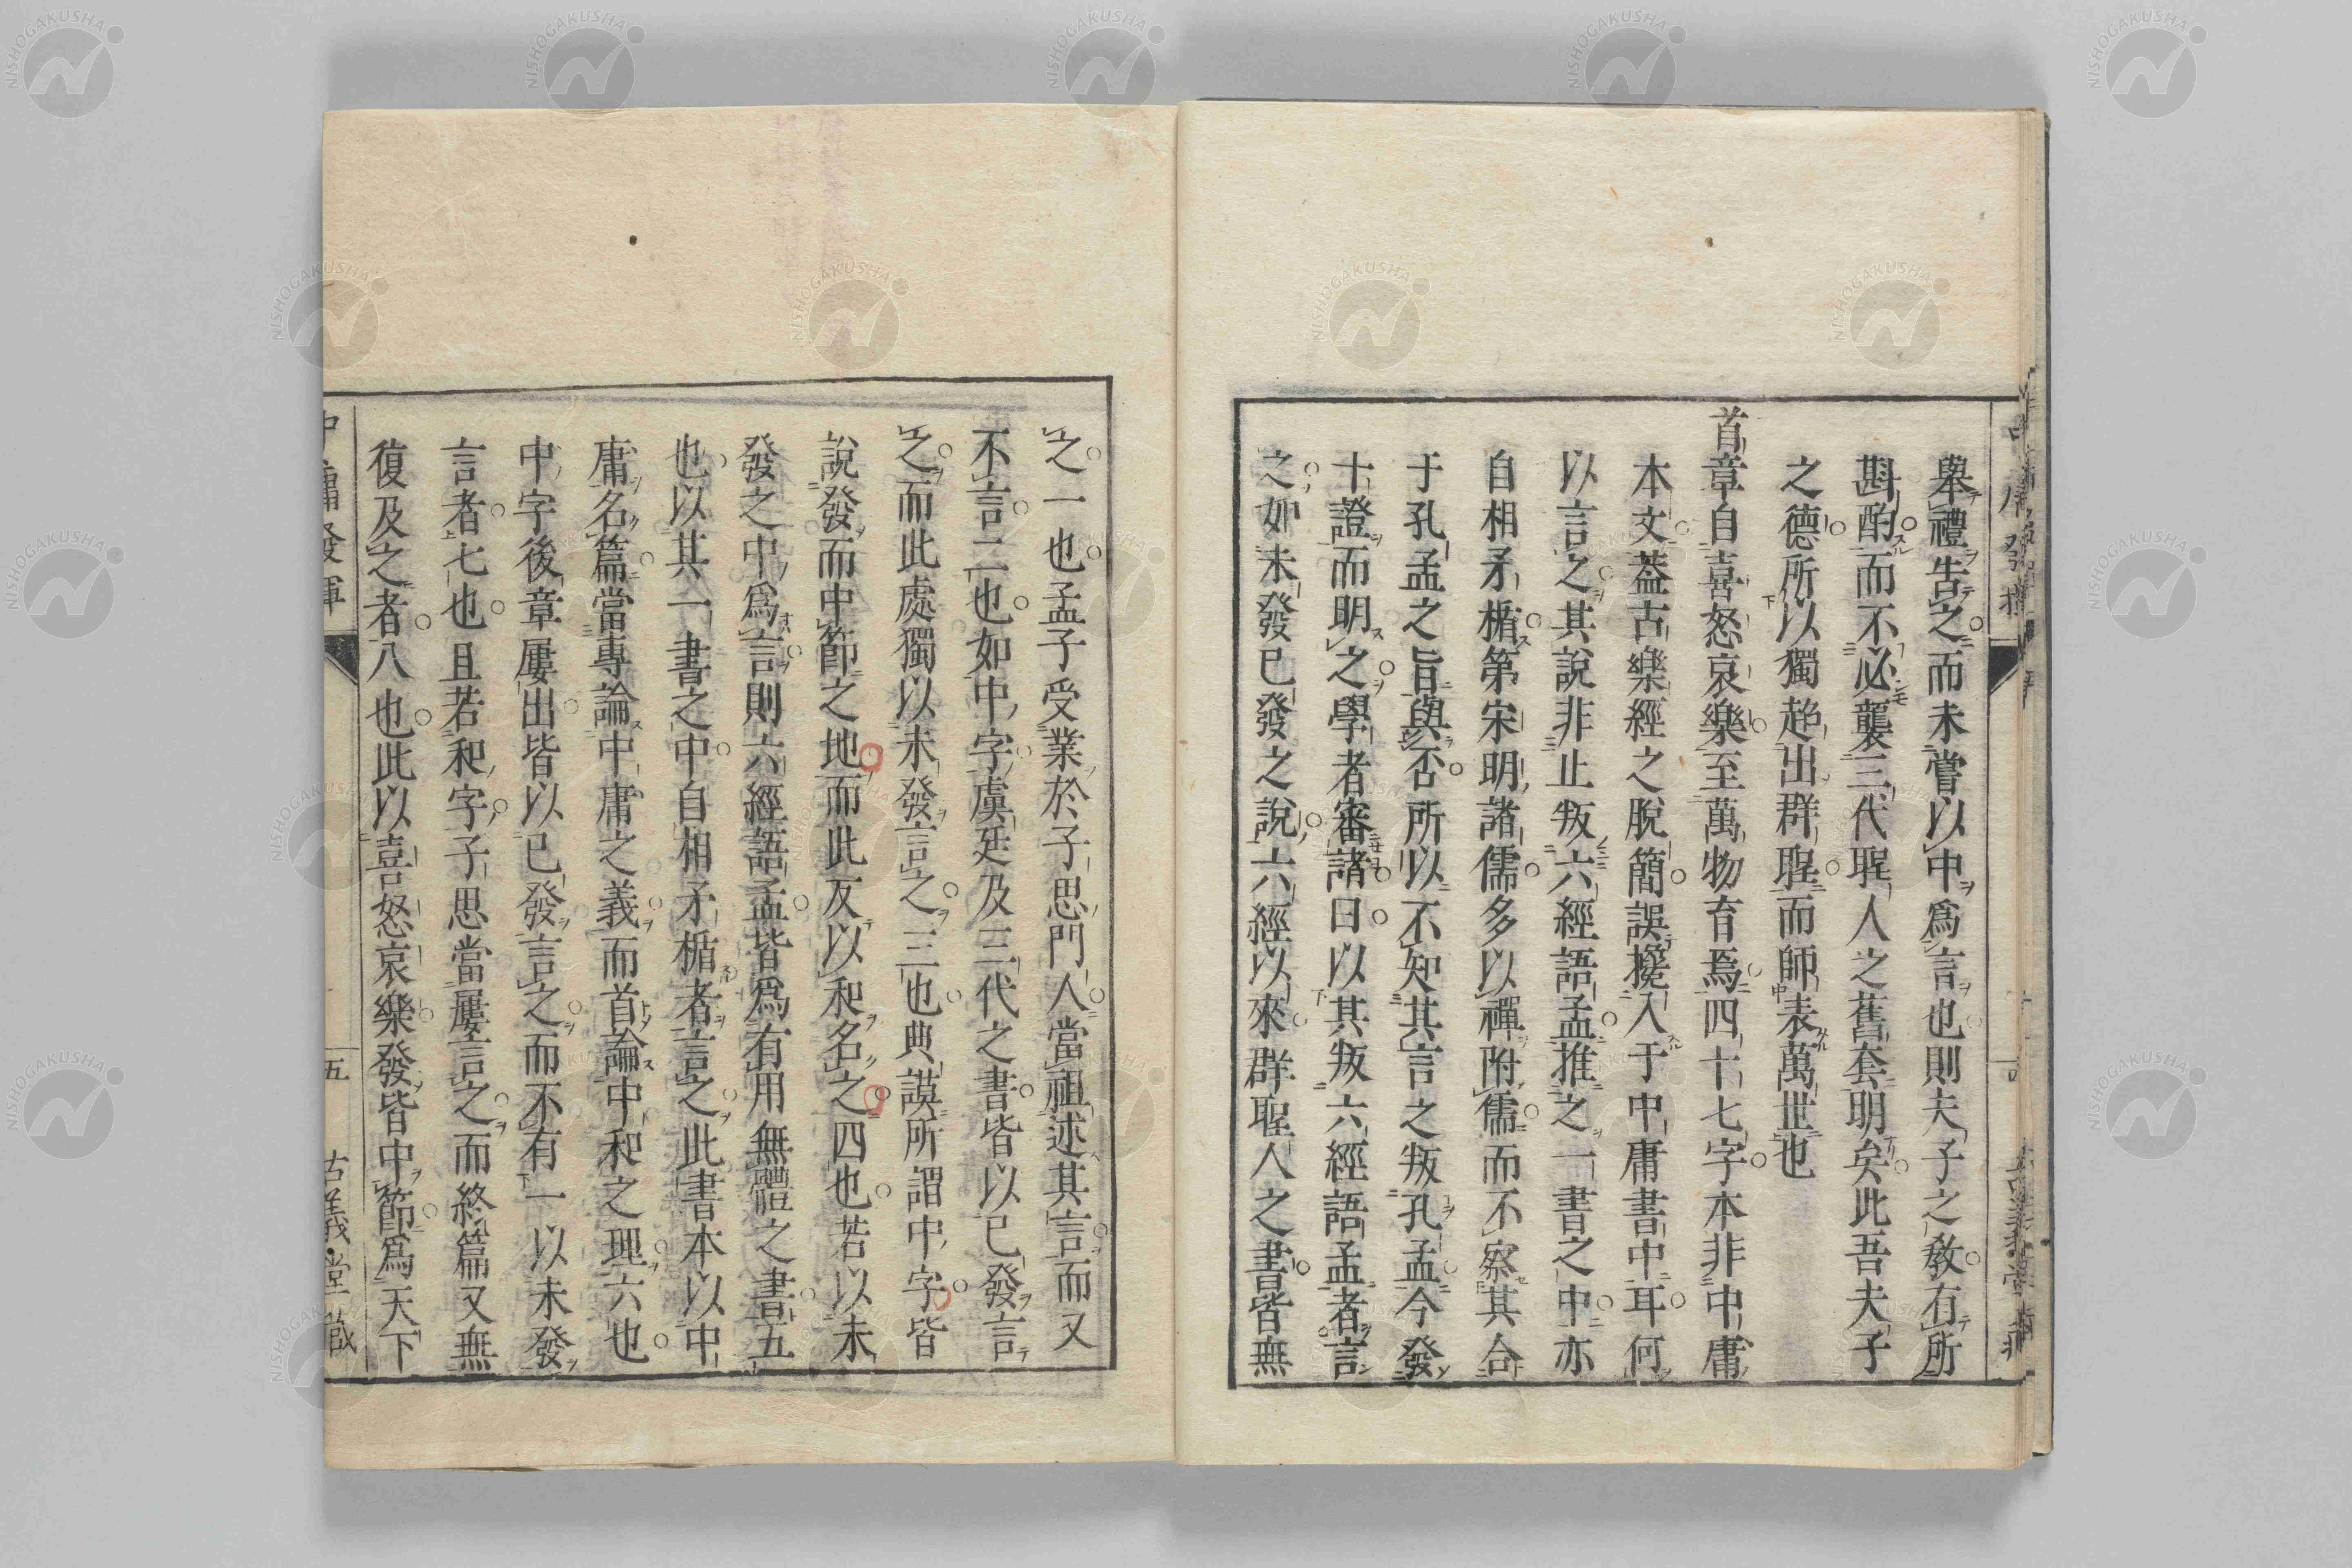 舉禮告之而未嘗以中爲言也則夫子之敎有所
斟酌而不必襲三代聖人之舊套明矣此吾夫子
之德所以獨超出群聖而師表萬世也
首章自喜怒哀樂至萬物育焉四十七字本非中庸
本文葢古樂經之脫簡誤攙入于中庸書中耳何
以言之其說非止叛六經語孟推之一書之中亦
自相矛楯第宋明諸儒多以禪附儒而不察其合
于孔孟之旨與否所以不知其言之叛孔孟今發
十證而明之學者審諸曰以其叛六經語孟者言
之如未發已發之說六經以來群聖人之書皆無
之一也孟子受業於子思門人當祖述其言而又
不言二也如中字虞廷及三代之書皆以已發言
之而此處獨以未發言之三也典謨所謂中字皆
說發而中節之地而此反以和名之四也若以未
發之中爲言則六經語孟皆爲有用無體之書五
也以其一書之中自相矛楯者言之此書本以中
庸名篇當專論中庸之義而首論中和之理六也
中字後章屢出皆以已發言之而不有一以未發
言者七也且若和字子思當屢言之而終篇又無
復及之者八也此以喜怒哀樂發皆中節爲天下
中庸發揮
五
古義堂藏
NISHOGAKUSHA